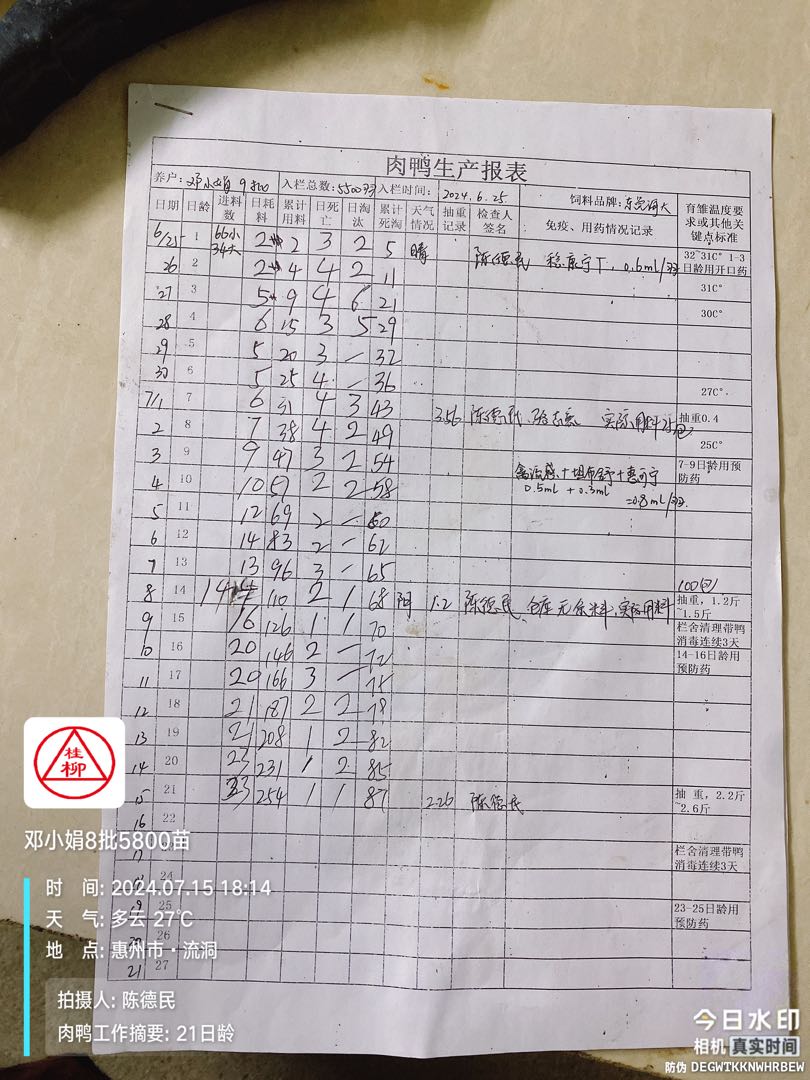 肉鸭生产报表
养户: 邓小娟 9批 入栏总数: 5500羽 入栏时间: 2024.6.25 饲料品牌:
日期 日龄 进料数 日耗料 累计用料 日死亡 日淘汰 累计死淘 天气情况 抽重记录 检查人签名 免疫、用药情况记录 育雏温度要求或其他关键点标准
6/25 1 66小 34大 2 2 3 2 5 晴 陈德民 0.6ml/羽 32~31C° 1-3日龄用开口药
26 2 2 4 4 2 11
27 3 5 9 4 6 21 31C°
28 4 6 15 3 5 29 30C°
29 5 5 20 3 - 32
30 6 5 25 4 - 36 27C°
7/1 7 6 31 4 3 43 陈德民 实际用料 抽重0.4
2 8 7 38 4 2 49 25C°
3 9 9 47 3 2 54 7-9日龄用预防药
4 10 10 57 2 2 58 0.5ml + 0.3ml =0.8ml/羽
5 11 12 69 2 - 60
6 12 14 83 2 - 62
7 13 13 96 3 - 65
8 14 144 14 110 2 1 68 阴 1.2 陈德民 仓库无余料,实际用料 100包 抽重,1.2斤~1.5斤
9 15 16 126 1 1 70 栏舍清理带鸭消毒连续3天
10 16 20 146 2 - 72 14-16日龄用预防药
11 17 20 166 3 - 75
12 18 21 187 2 2 79
13 19 21 208 1 2 82
14 20 23 231 1 2 85
15 21 23 254 1 1 87 2.26 陈德民 抽重,2.2斤~2.6斤
16 22
17 栏舍清理带鸭消毒连续3天
24
19 25 23-25日龄用预防药
20 26
21 27
桂柳
邓小娟8批5800苗
时 间: 2024.07.15 18:14
天 气: 多云 27℃
地 点: 惠州市·流洞
拍摄人: 陈德民
肉鸭工作摘要: 21日龄
今日水印
相机 真实时间
防伪 DEGWTKKNWHRBEW